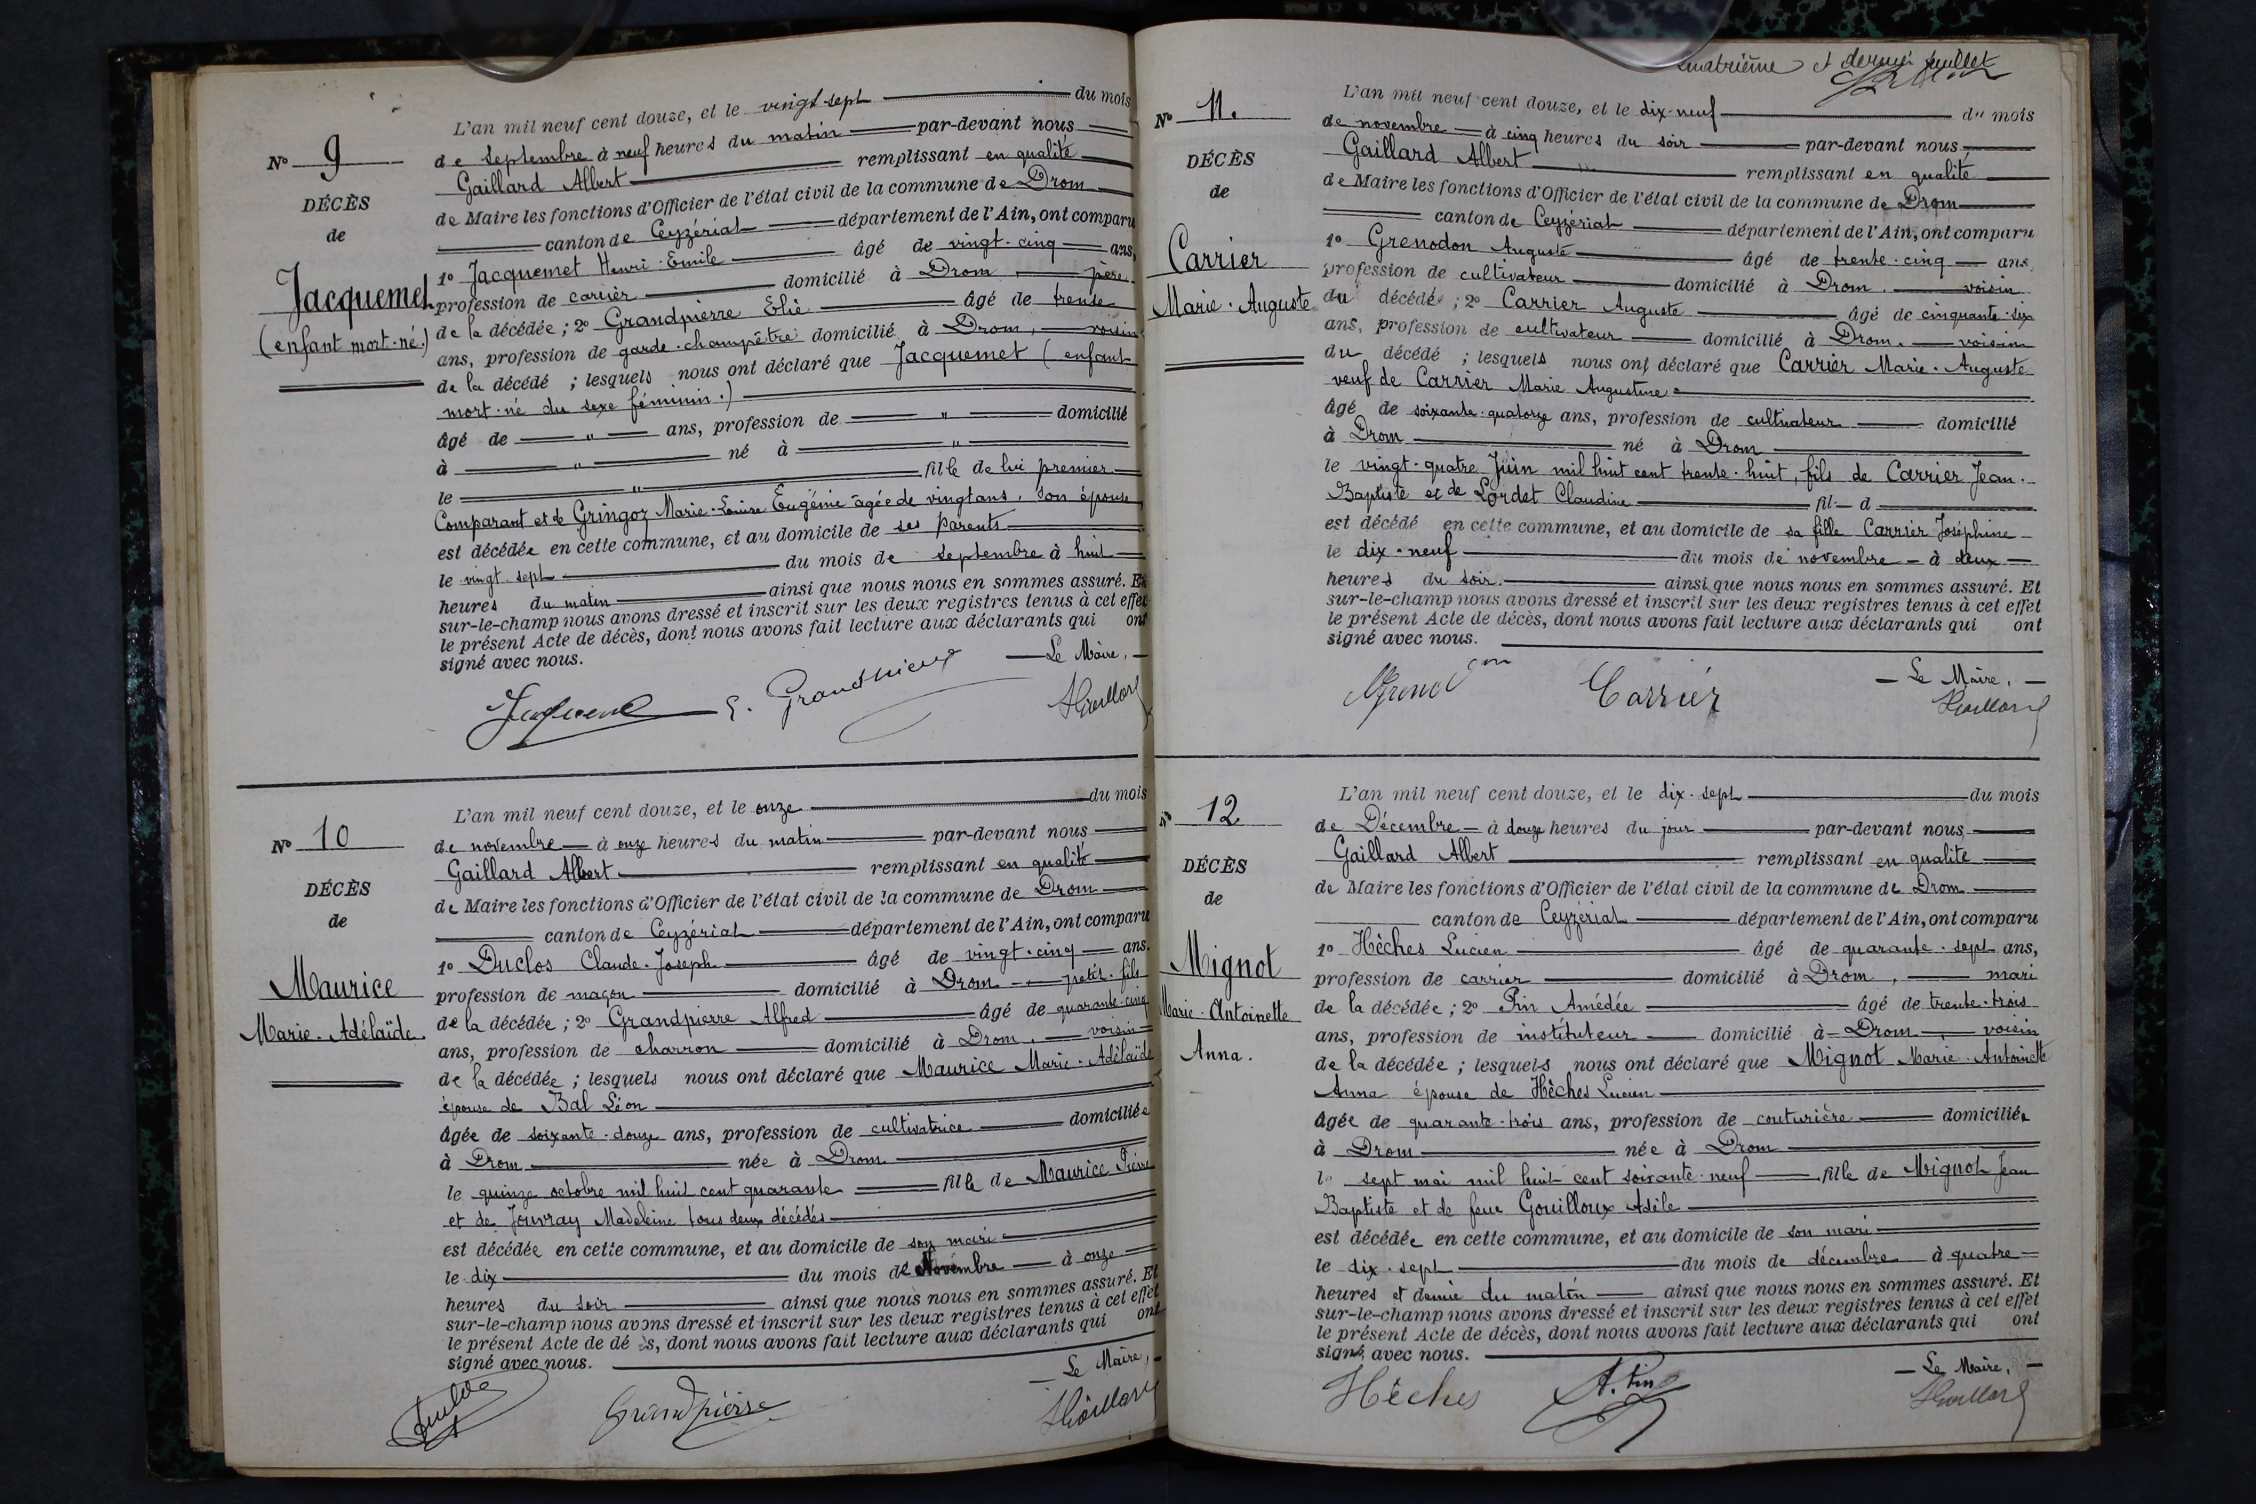 L'an mil neuf cent douze, et le vingt-sept du mois
No 9
de Septembre à neuf heures du matin par-devant nous
Gaillard Albert remplissant en qualité
DÉCÈS
de Maire les fonctions d'Officier de l'état civil de la commune de Drom
de
canton de Ceyzériat département de l'Ain, ont comparu
1o Jacquemet Henri-Emile âgé de vingt-cinq ans,
Jacquemet
profession de carrier domicilié à Drom, père
(enfant mort-né.)
de la décédée ; 2o Grandpierre Elie âgé de trente
ans, profession de garde-champêtre domicilié à Drom, voisin
de la décédé ; lesquels nous ont déclaré que Jacquemet (enfant
mort-né du sexe féminin.)
âgé de " ans, profession de " domicilié
à " né à "
le " fille de lui premier
Comparant et de Gringoz Marie-Louise Eugénie âgée de vingt ans, son épouse
est décédée en cette commune, et au domicile de ses parents
le vingt sept du mois de septembre à huit
heures du matin ainsi que nous nous en sommes assuré. Et
sur-le-champ nous avons dressé et inscrit sur les deux registres tenus à cet effet
le présent Acte de décès, dont nous avons fait lecture aux déclarants qui ont
signé avec nous.
Le Maire,
E. Grandpierre
AGaillard
L'an mil neuf cent douze, et le onze du mois
No 10
de novembre à onze heures du matin par-devant nous
Gaillard Albert remplissant en qualité
DÉCÈS
de Maire les fonctions d'Officier de l'état civil de la commune de Drom
de
canton de Ceyzériat département de l'Ain, ont comparu
1o Duclos Claude-Joseph âgé de vingt-cinq ans.
Maurice
profession de maçon domicilié à Drom petit-fils
Marie-Adélaïde
de la décédée ; 2o Grandpierre Alfred âgé de quarante-cinq
ans, profession de charron domicilié à Drom, voisin
de la décédée ; lesquels nous ont déclaré que Maurice Marie-Adélaïde
épouse de Bal Léon
âgée de soixante-douze ans, profession de cultivatrice domiciliée
à Drom née à Drom
le quinze octobre mil huit cent quarante fille de Maurice Pierre
et de Jouvray Madeleine tous deux décédés
est décédée en cette commune, et au domicile de son mari
le dix du mois de Novembre à onze
heures du soir ainsi que nous nous en sommes assuré. Et
sur-le-champ nous avons dressé et inscrit sur les deux registres tenus à cet effet
le présent Acte de dé ès, dont nous avons fait lecture aux déclarants qui ont
signé avec nous.
Le Maire,
Grandpierre
AGaillard
Quatrième et dernier feuillet
L'an mil neuf cent douze, et le dix-neuf du mois
No 11.
de novembre à cinq heures du soir par-devant nous
DÉCÈS
Gaillard Albert remplissant en qualité
de
de Maire les fonctions d'Officier de l'état civil de la commune de Drom
canton de Ceyzériat département de l'Ain, ont comparu
Carrier
1o Grenodon Auguste âgé de trente-cinq ans,
profession de cultivateur domicilié à Drom. voisin
Marie-Auguste
du décédé ; 2o Carrier Auguste âgé de cinquante-six
ans, profession de cultivateur domicilié à Drom. voisin
du décédé ; lesquels nous ont déclaré que Carrier Marie-Auguste
veuf de Carrier Marie Augustine
âgé de soixante-quatorze ans, profession de cultivateur domicilié
à Drom né à Drom
le vingt-quatre Juin mil huit cent trente-huit, fils de Carrier Jean-
Baptiste et de Lordet Claudine fil d
est décédé en cette commune, et au domicile de sa fille Carrier Joséphine
le dix-neuf du mois de novembre à deux
heures du soir. ainsi que nous nous en sommes assuré. Et
sur-le-champ nous avons dressé et inscrit sur les deux registres tenus à cet effet
le présent Acte de décès, dont nous avons fait lecture aux déclarants qui ont
signé avec nous.
Le Maire,
Carrier
AGaillard
L'an mil neuf cent douze, et le dix-sept du mois
No 12
de Décembre à douze heures du jour par-devant nous
Gaillard Albert remplissant en qualité
DÉCÈS
de Maire les fonctions d'Officier de l'état civil de la commune de Drom
de
canton de Ceyzériat département de l'Ain, ont comparu
1o Hèches Lucien âgé de quarante-sept ans,
Mignot
profession de carrier domicilié à Drom, mari
Marie-Antoinette
de la décédée ; 2o Pin Amédée âgé de trente-trois
ans, profession de instituteur domicilié à Drom, voisin
Anna.
de la décédée ; lesquels nous ont déclaré que Mignot Marie-Antoinette
Anna épouse de Hèches Lucien
âgée de quarante-trois ans, profession de couturière domiciliée
à Drom née à Drom
le sept mai mil huit cent soixante-neuf fille de Mignot Jean
Baptiste et de feue Gouilloux Adèle
est décédée en cette commune, et au domicile de son mari
le dix-sept du mois de décembre à quatre
heures et demie du matin ainsi que nous nous en sommes assuré. Et
sur-le-champ nous avons dressé et inscrit sur les deux registres tenus à cet effet
le présent Acte de décès, dont nous avons fait lecture aux déclarants qui ont
signé avec nous.
Le Maire,
Hèches
A. Pin
AGaillard